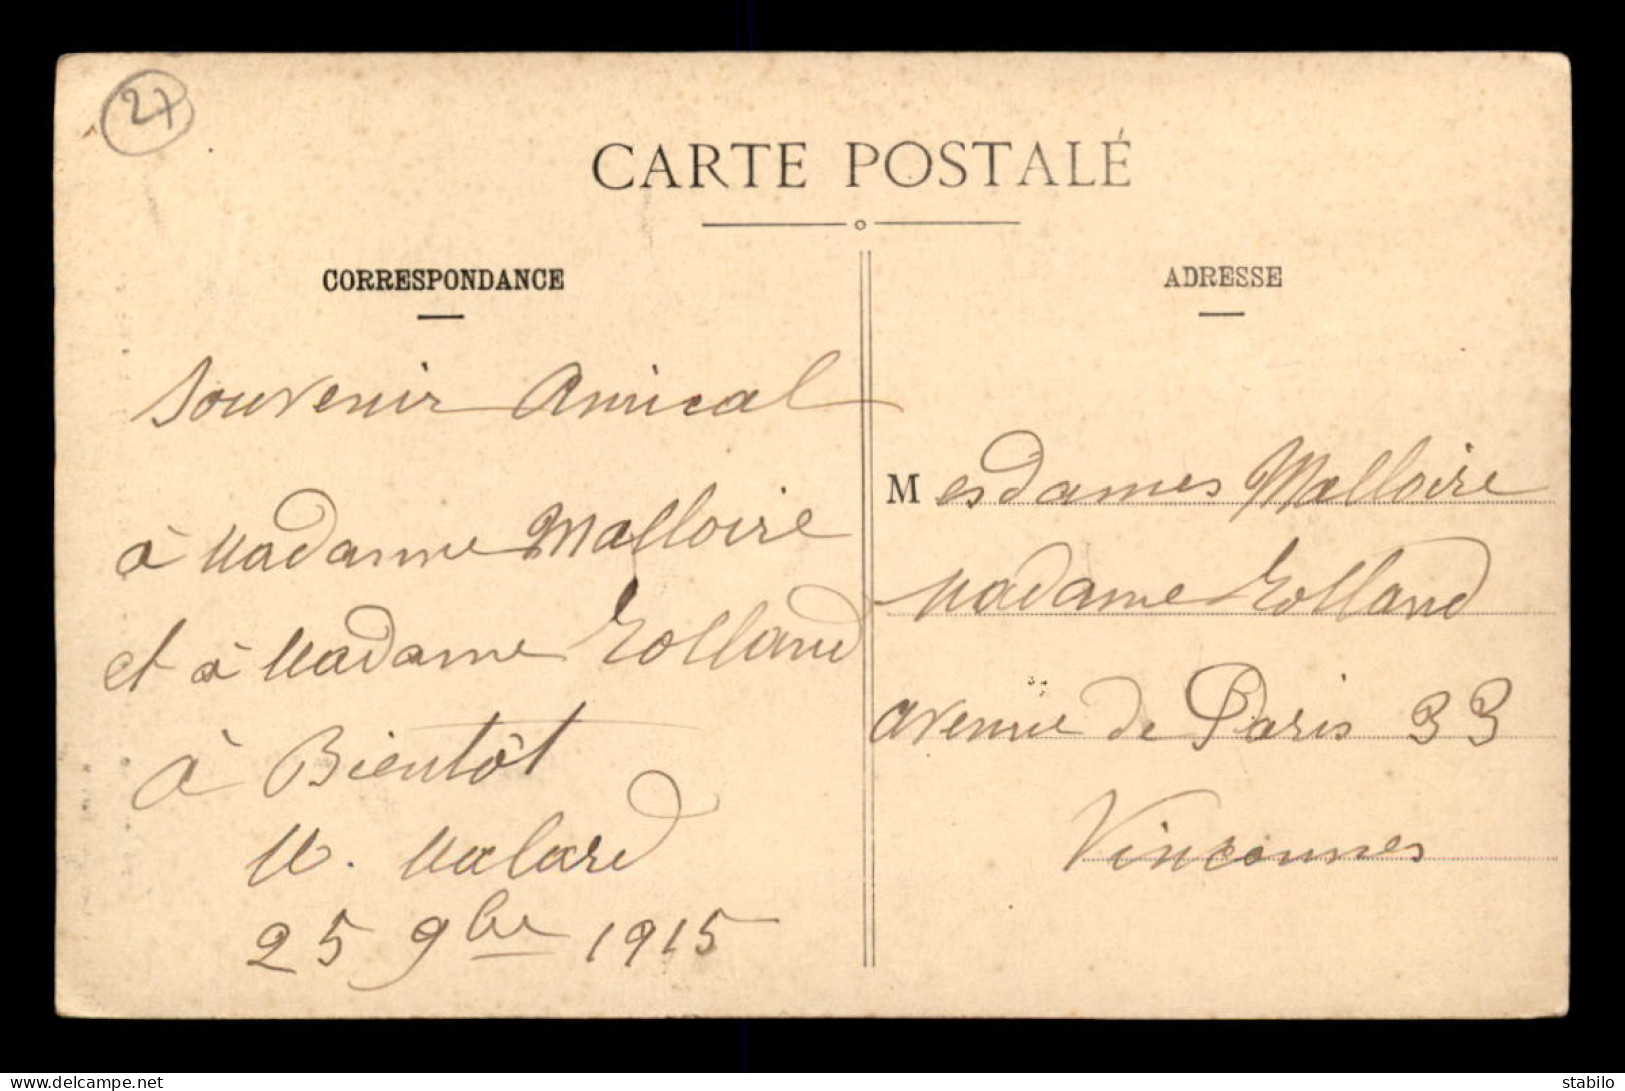 27
CARTE POSTALE
CORRESPONDANCE
Souvenir Amical
à Madame Malloire
et à Madame Rolland
à Bientôt
M. Malard
25 9bre 1915
ADRESSE
Mesdames Malloire
Madame Rolland
avenue de Paris 33
Vincennes
delcampe.net
stabilo